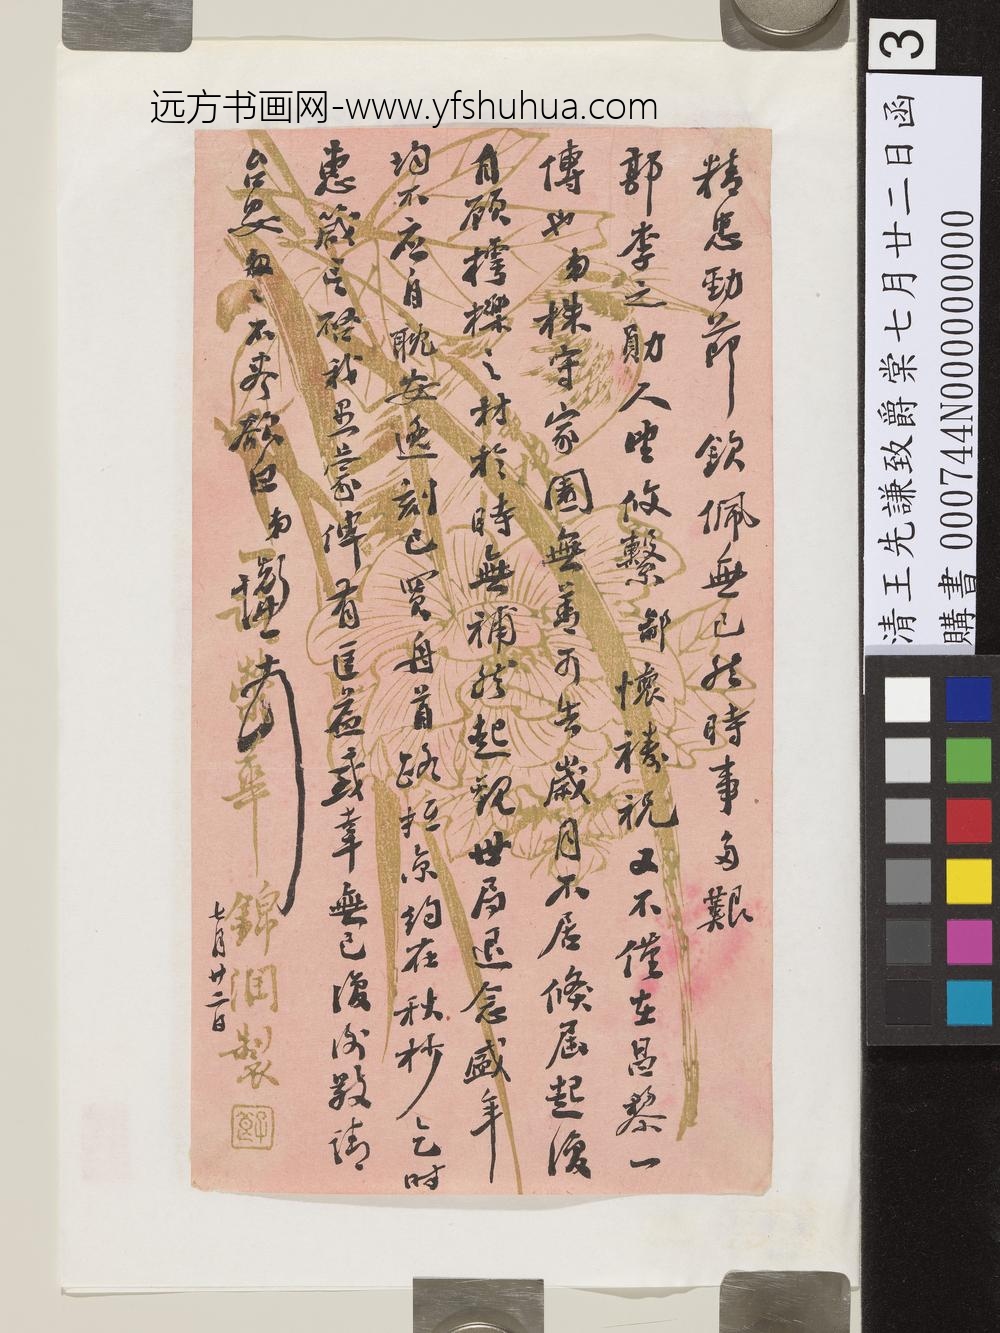 远方书画网-www.yfshuhua.com
精忠勁節欽佩無已然時事多艱
郭李之勛人望攸繫鄙懷禱祝又不僅在昌黎一
傳也弟株守家園無善可告歲月不居倏屆起復
自顧樗櫟之材於時無補然起觀世局退念盛年
均不應自耽安逸刻已買舟首路抵京約在秋杪乞時
惠箴言啓我愚蒙俾有匡益感幸無已復謝敬請
台安敬之不盡欲白弟先謙頓首
七月廿二日
榮華
錦潤製
3
清王先謙致爵棠七月廿二日函
購書 000744N000000000